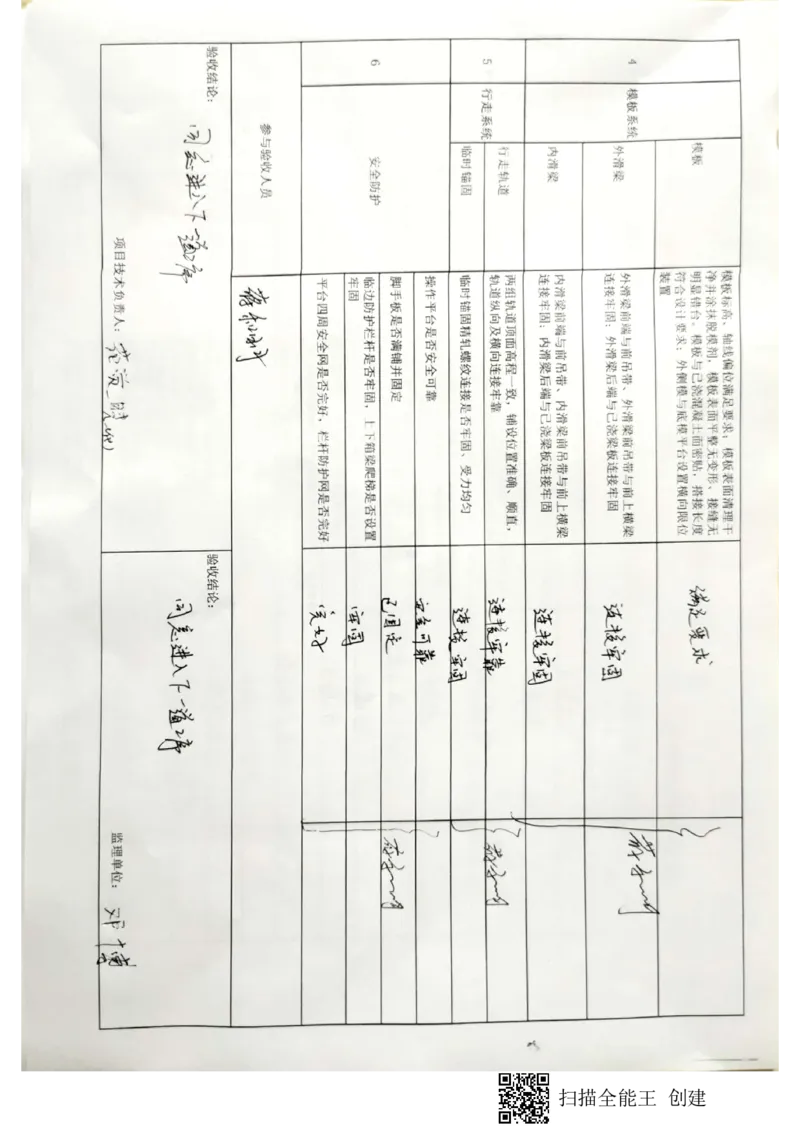 4
模板系统
模板
模板标高、轴线偏位满足要求；模板表面清理干
净并涂抹脱模剂，模板表面平整无变形、接缝无
明显错台。模板与已浇混凝土面密贴，搭接长度
符合设计要求；外侧模与底模平台设置横向限位
装置
满足要求
外滑梁
外滑梁前端与前吊带、外滑梁前吊带与前上横梁
连接牢固；外滑梁后端与已浇梁板连接牢固
连接牢固
内滑梁
内滑梁前端与前吊带、内滑梁前吊带与前上横梁
连接牢固；内滑梁后端与已浇梁板连接牢固
连接牢固
5
行走系统
行走轨道
两组轨道顶面高程一致，铺设位置准确、顺直，
轨道纵向及横向连接牢靠
连接牢靠
临时锚固
临时锚固精轧螺纹连接是否牢固、受力均匀
连接牢固
6
安全防护
操作平台是否安全可靠
安全可靠
脚手板是否满铺并固定
已固定
临边防护栏杆是否牢固，上下箱梁爬梯是否设置
牢固
牢固
平台四周安全网是否完好，栏杆防护网是否完好
完好
参与验收人员
验收结论：
同意进入下一道工序
项目技术负责人：
验收结论：
同意进入下一道工序
监理单位：
邓博
扫描全能王 创建